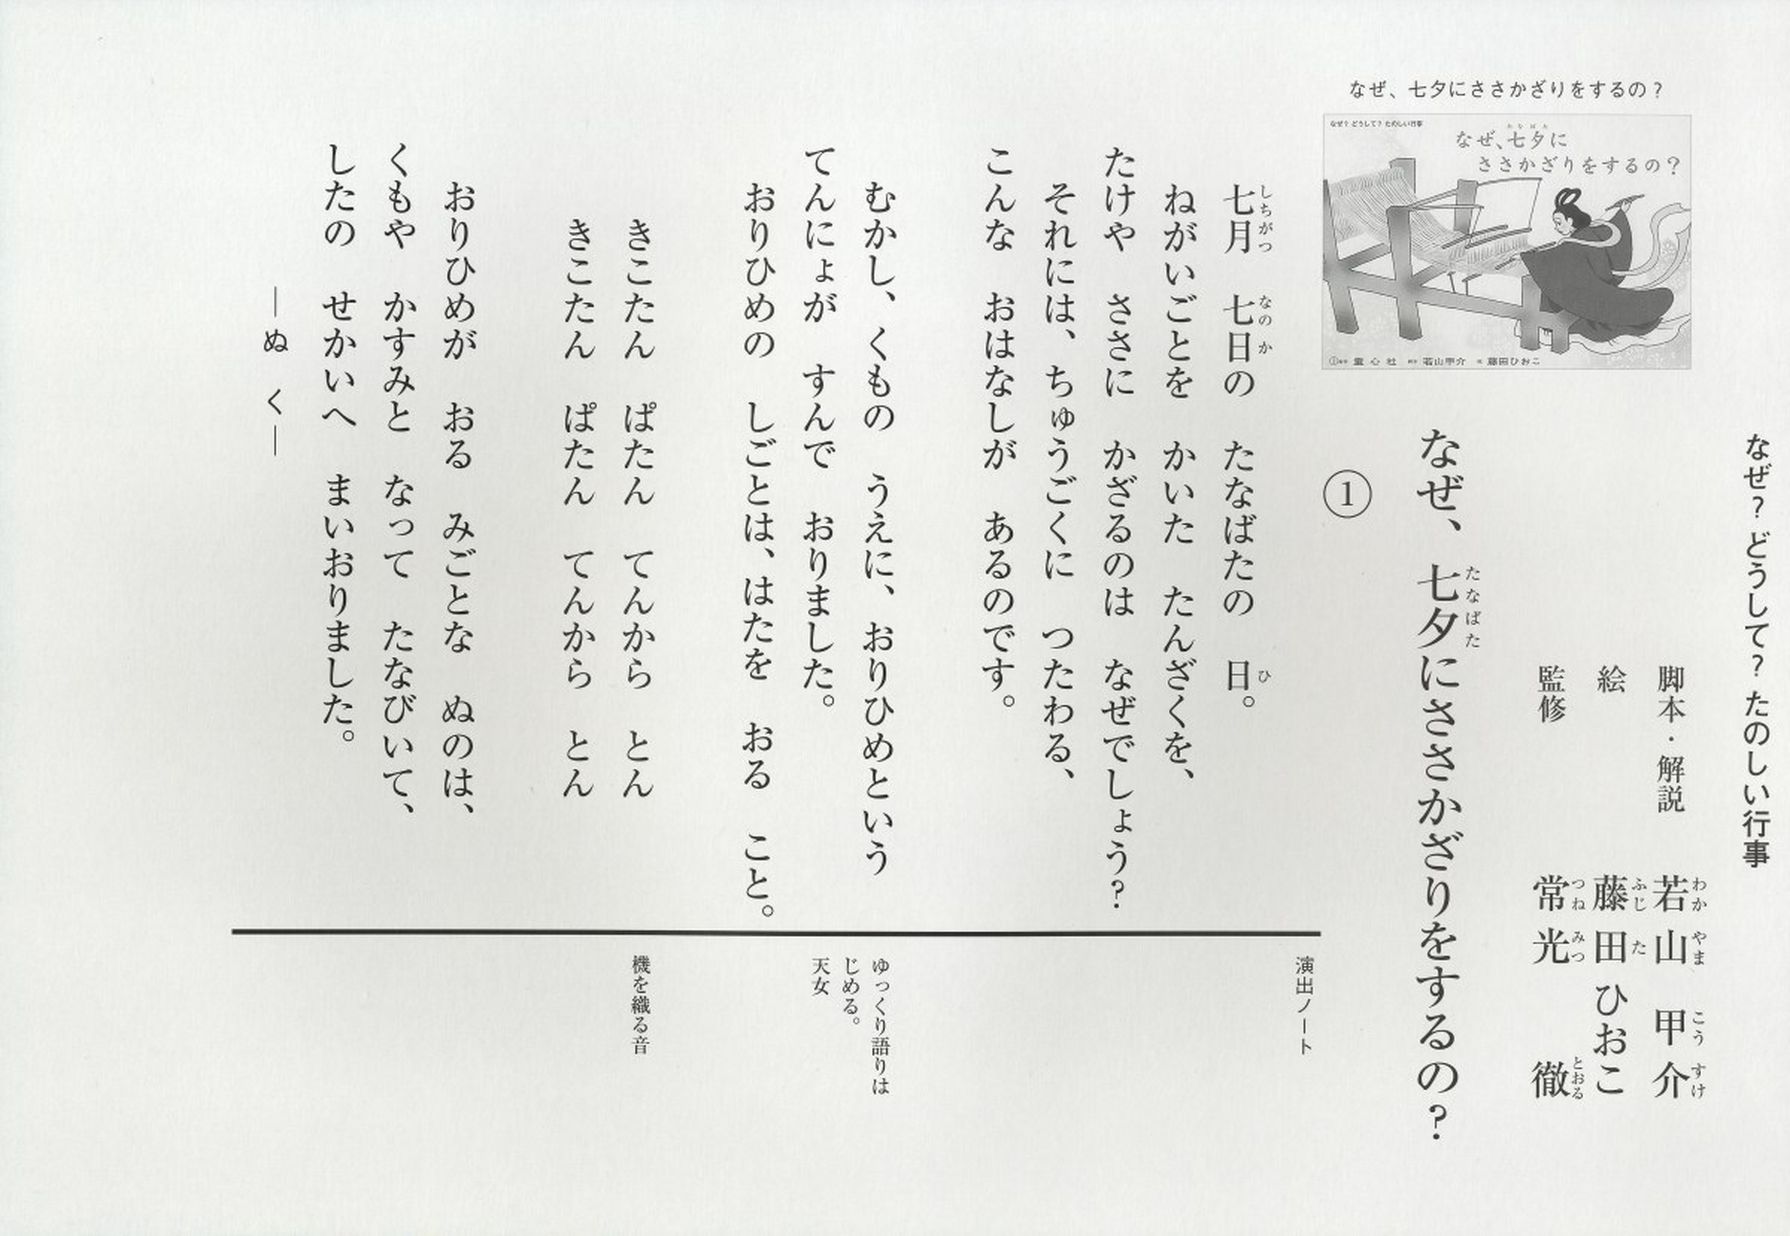 なぜ？どうして？たのしい行事
脚本・解説　若山甲介
わかやま　こうすけ
絵　藤田ひおこ
ふじた
監修　常光　徹
つねみつ　とおる
なぜ、七夕にささかざりをするの？
なぜ？どうして？たのしい行事
なぜ、七夕に
たなばた
ささかざりをするの？
①
童心社
若山甲介
藤田ひおこ
なぜ、七夕にささかざりをするの？
たなばた
①
七月　七日の　たなばたの　日。
しちがつ　なのか　ひ
ねがいごとを　かいた　たんざくを、
たけや　ささに　かざるのは　なぜでしょう？
それには、ちゅうごくに　つたわる、
こんな　おはなしが　あるのです。
むかし、くもの　うえに、おりひめという
てんにょが　すんで　おりました。
おりひめの　しごとは、はたを　おる　こと。
きこたん　ぱたん　てんから　とん
きこたん　ぱたん　てんから　とん
おりひめが　おる　みごとな　ぬのは、
くもや　かすみと　なって　たなびいて、
したの　せかいへ　まいおりました。
―ぬ　く―
演出ノート
ゆっくり語りは
じめる。
天女
機を織る音